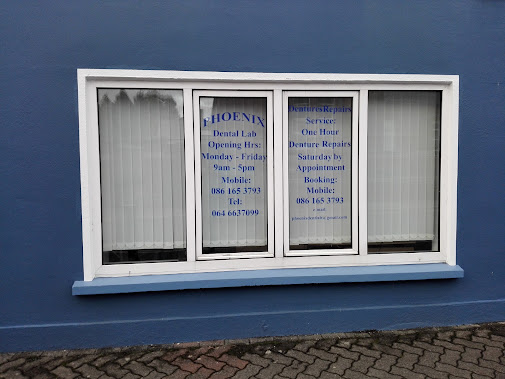 PHOENIX
Dental Lab
Opening Hrs:
Monday - Friday
9am - 5pm
Mobile:
086 165 3793
Tel:
064 6637099
DenturesRepairs
Service:
One Hour
Denture Repairs
Saturday by
Appointment
Booking:
Mobile:
086 165 3793
e mail